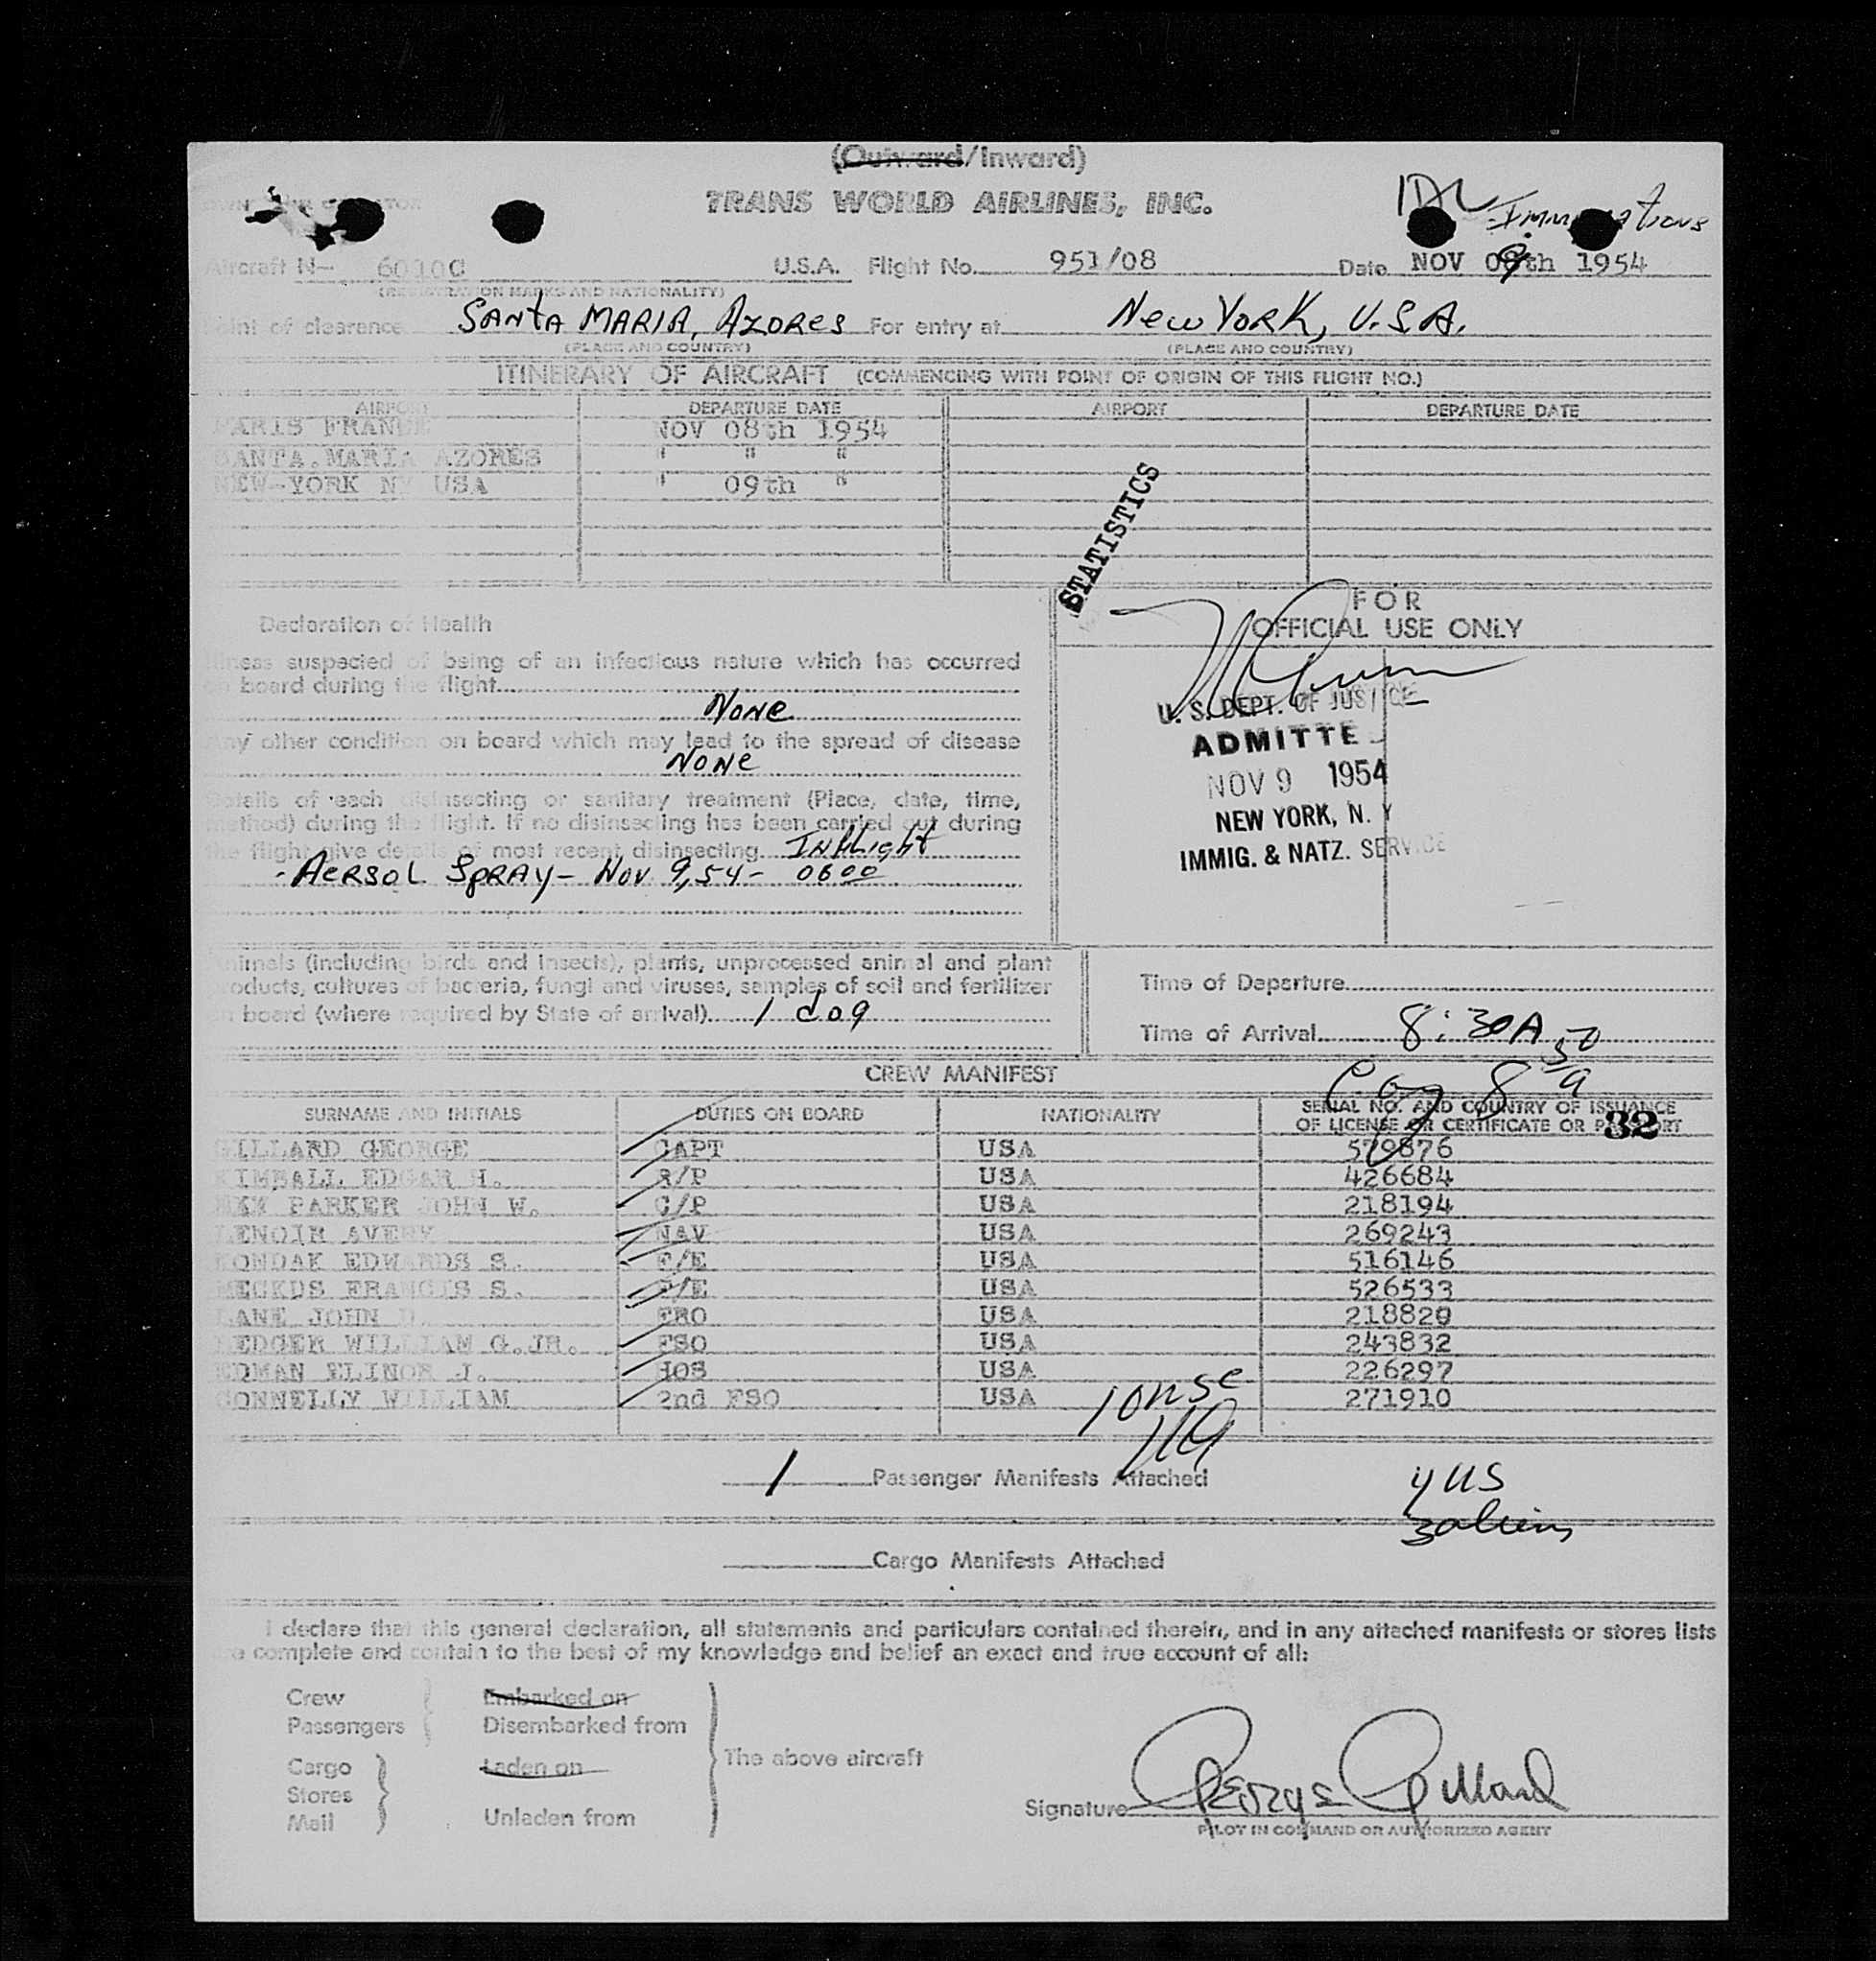 (Outward/Inward)
TRANS WORLD AIRLINES, INC.
Immigrations
Aircraft N- 6010C U.S.A. Flight No. 951/08 Date NOV 09th 1954
(REGISTRATION MARKS AND NATIONALITY)
Point of clearance SANTA MARIA, AZORES For entry at New YORK, U.S.A.
(PLACE AND COUNTRY) (PLACE AND COUNTRY)
ITINERARY OF AIRCRAFT (COMMENCING WITH POINT OF ORIGIN OF THIS FLIGHT NO.)
AIRPORT DEPARTURE DATE AIRPORT DEPARTURE DATE
PARIS FRANCE NOV 08th 1954
SANTA.MARIA AZORES " " "
NEW-YORK NY USA " 09th "
STATISTICS
Declaration of Health
Illness suspected of being of an infectious nature which has occurred
on board during the flight
None
Any other condition on board which may lead to the spread of disease
None
Details of each disinsecting or sanitary treatment (Place, date, time,
method) during the flight. If no disinsecting has been carried out during
the flight give details of most recent disinsecting INFLight
- AERSOL SPRAY - Nov 9,54 - 0600
FOR
OFFICIAL USE ONLY
U. S. DEPT. OF JUSTICE
ADMITTE
NOV 9 1954
NEW YORK, N. Y
IMMIG. & NATZ. SERVICE
Animals (including birds and insects), plants, unprocessed animal and plant
products, cultures of bacteria, fungi and viruses, samples of soil and fertilizer
on board (where required by State of arrival) 1 dog
Time of Departure
Time of Arrival 8:30A
CREW MANIFEST
SURNAME AND INITIALS DUTIES ON BOARD NATIONALITY SERIAL NO. AND COUNTRY OF ISSUANCE
OF LICENSE OR CERTIFICATE OR PASSPORT
32
GILLARD GEORGE CAPT USA 579876
KIMBALL EDGAR H. R/P USA 426684
PARKER JOHN W. C/P USA 218194
LENOIR AVERY NAV USA 269243
KONDAK EDWARDS S. F/E USA 516146
MECKUS FRANCIS S. F/E USA 526533
LANE JOHN D. FRO USA 218820
HEDGER WILLIAM G.JR. FSO USA 243832
EDMAN ELINOR J. HOS USA 226297
CONNELLY WILLIAM 2nd FSO USA 271910
1 Passenger Manifests Attached
4 US
3 aliens
Cargo Manifests Attached
I declare that this general declaration, all statements and particulars contained therein, and in any attached manifests or stores lists
are complete and contain to the best of my knowledge and belief an exact and true account of all:
Crew Embarked on
Passengers Disembarked from
Cargo Laden on The above aircraft
Stores
Mail Unladen from
Signature George Gillard
PILOT IN COMMAND OR AUTHORIZED AGENT